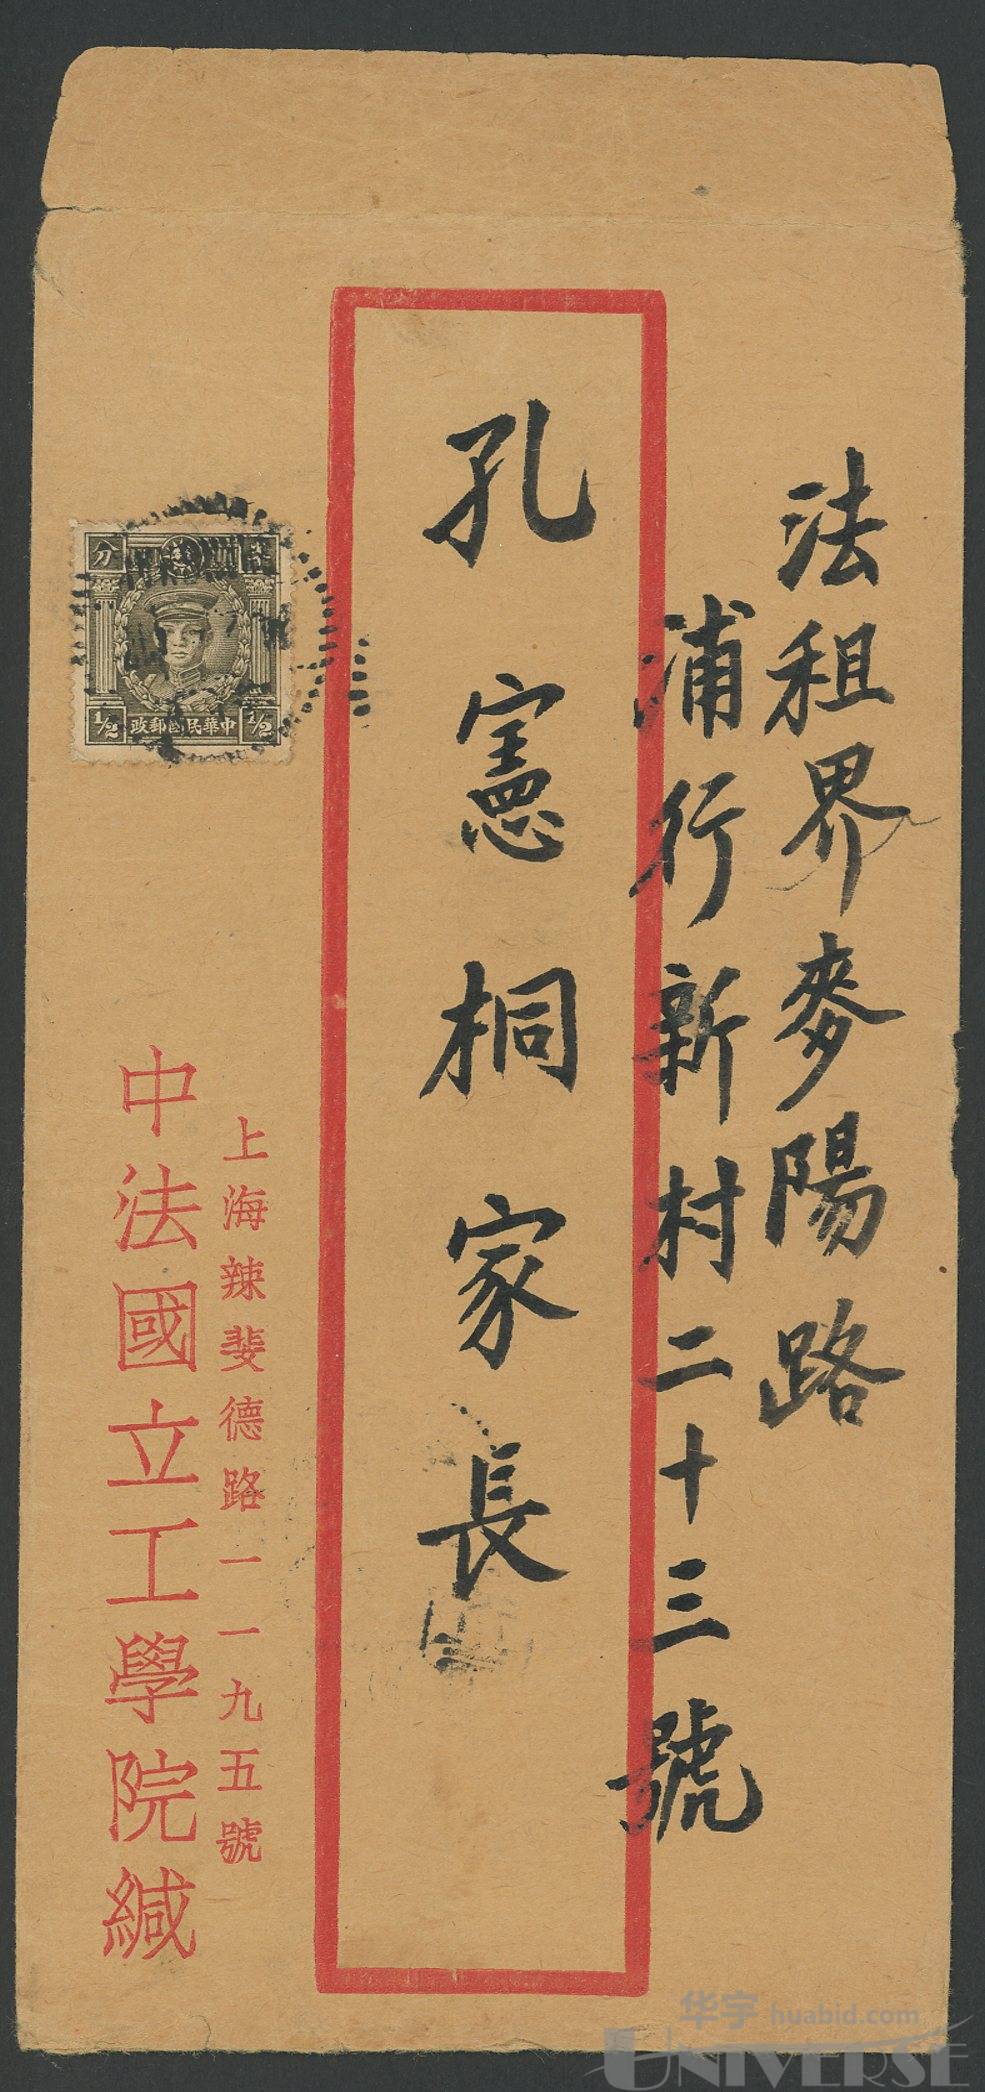 法租界麥陽路
浦行新村二十三號
孔憲桐家長
上海辣斐德路一一九五號
中法國立工學院緘
分
1/2
1/2
政郵國民華中
华宇 huabid.com
UNIVERSE